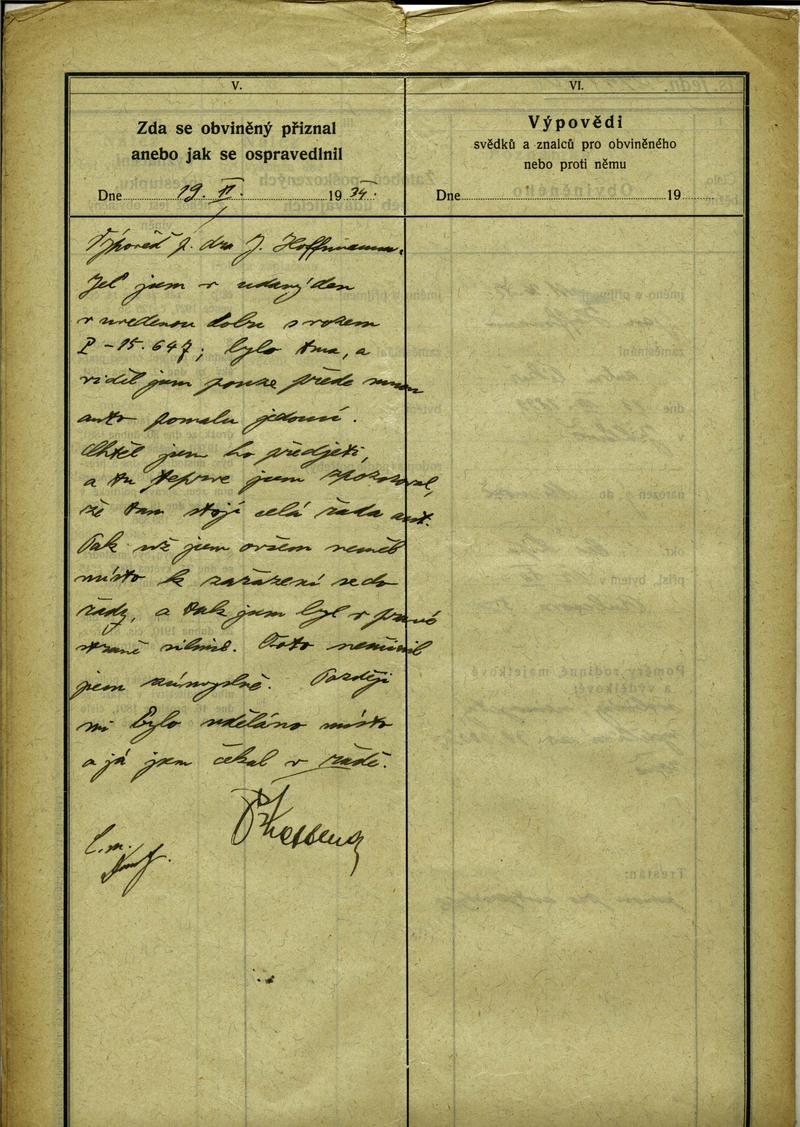 V.
Zda se obviněný přiznal
anebo jak se ospravedlnil
Dne 19. II. 1934.
Výpověď p. dra J. Hoffmanna.
Jel jsem v udaný den
v uvedenou dobu s vozem
P-15.647; bylo tma, a
viděl jsem pouze přede mnou
auto pomalu jedoucí.
Chtěl jsem ho předjeti,
a tu teprve jsem zpozoroval,
že tam stojí celá řada aut.
Pak už jsem ovšem neměl
místo k zařazení se do
řady, a tak jsem byl v pravé
straně silnice. Toto neučinil
jsem zúmyslně. Později
mi bylo uděláno místo
a já jsem čekal v řadě.
VI.
Výpovědi
svědků a znalců pro obviněného
nebo proti němu
Dne 19